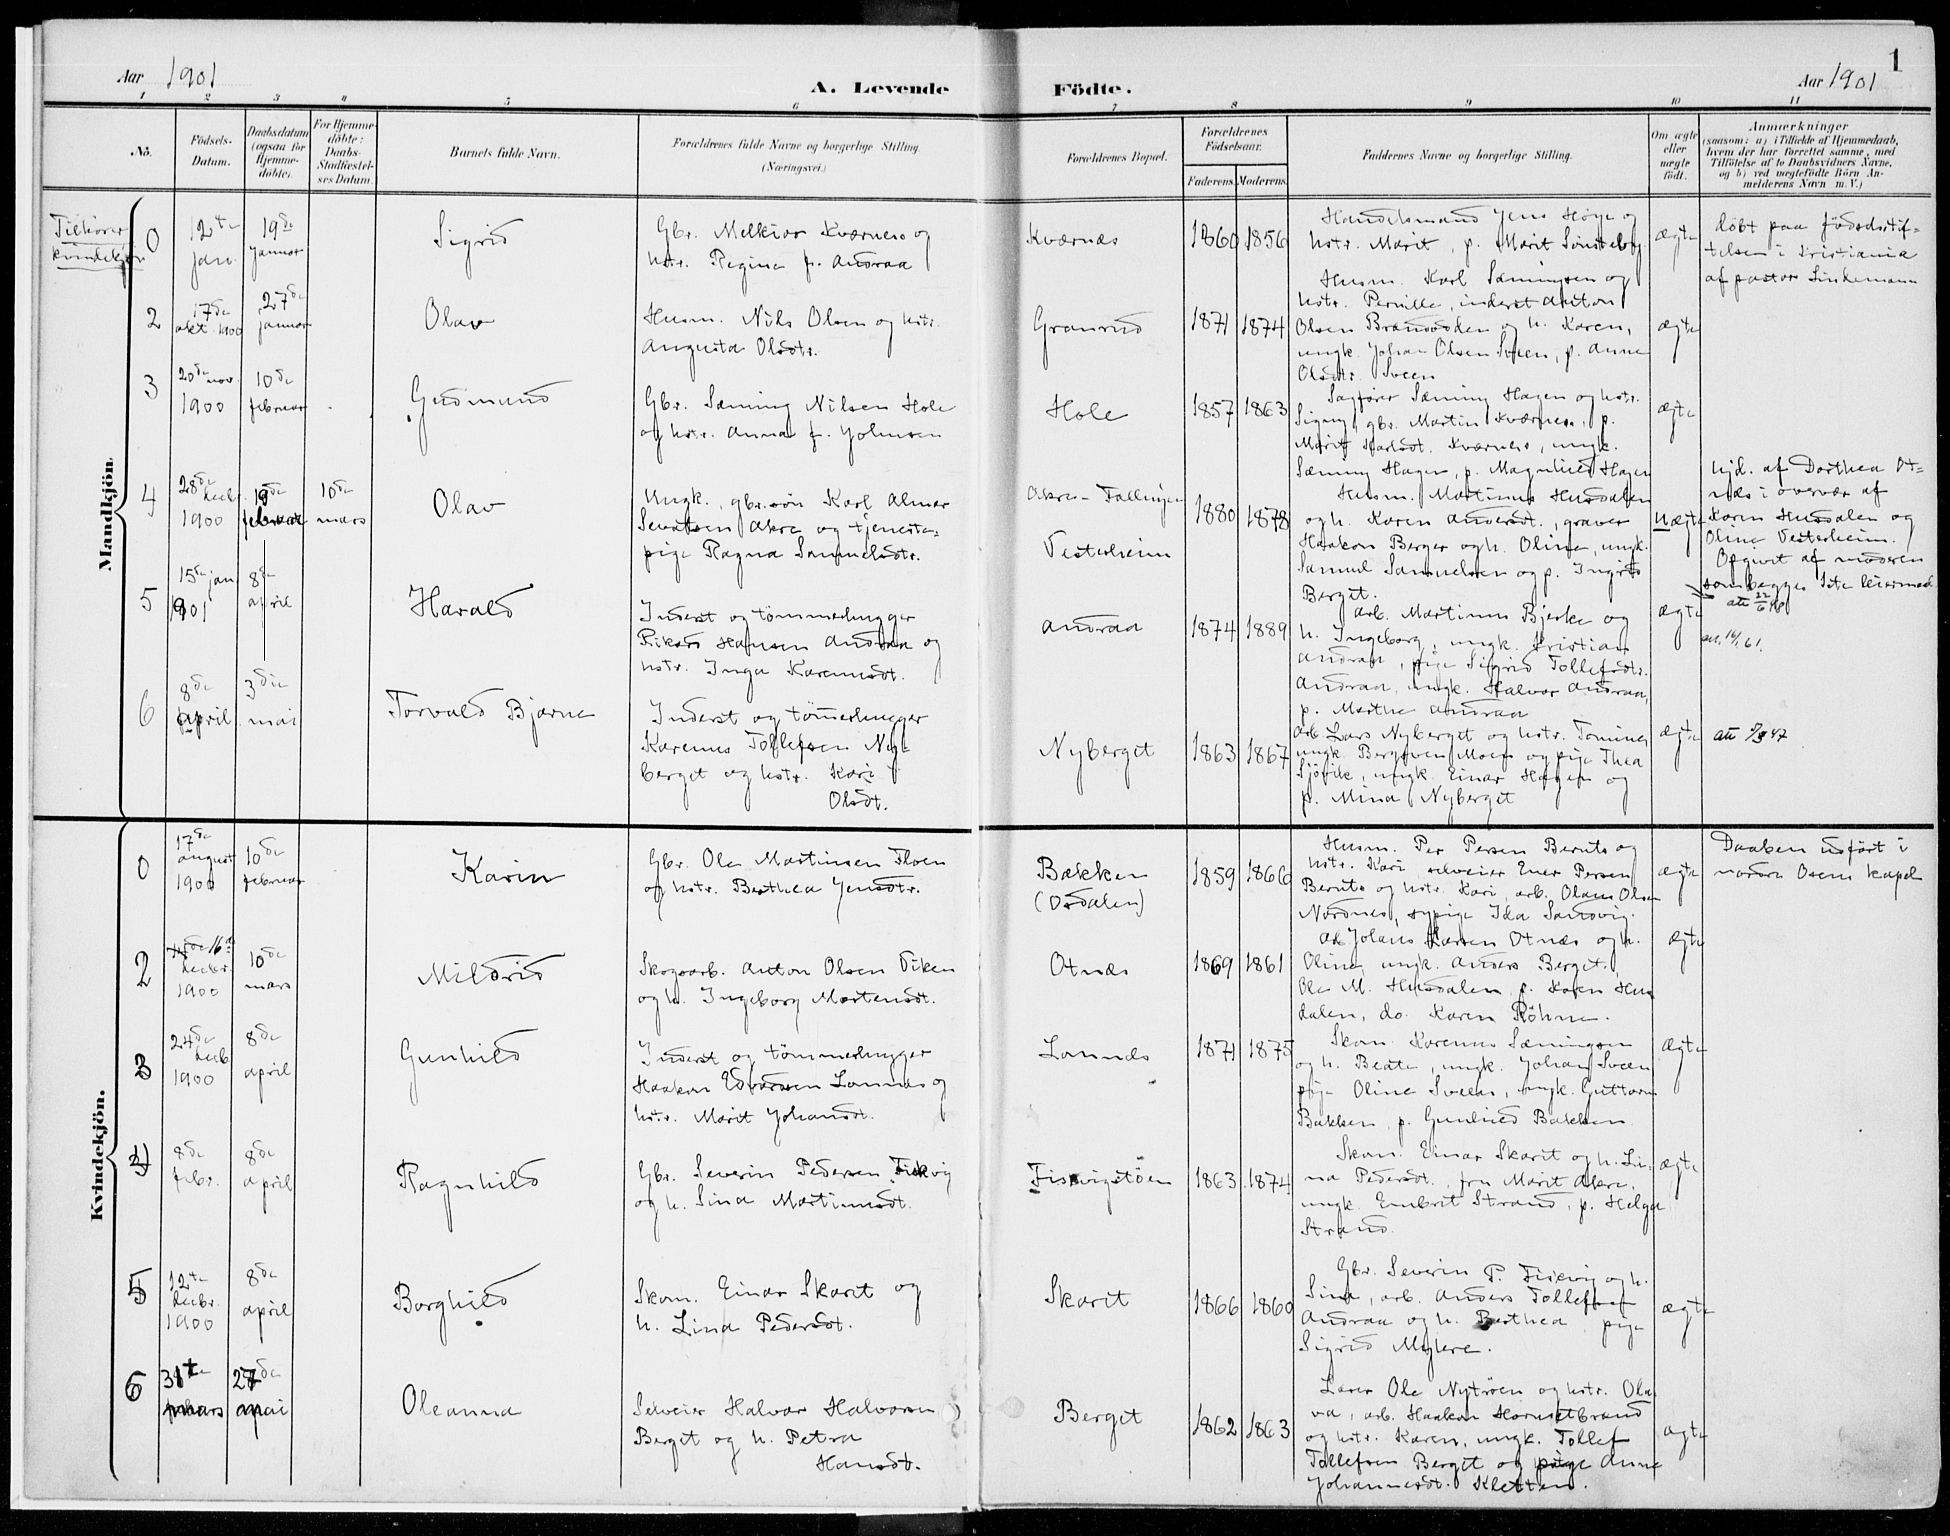 1
Aar 1901
A. Levende Födte.
Aar 1901
1 2 3 4 5 6 7 8 9 10 11
No.
Födsels-
Datum.
Daabsdatum
(ogsaa for
Hjemme-
döbte).
For Hjemme-
döbte:
Daabs-
Stadfæstel-
ses Datum.
Barnets fulde Navn.
Forældrenes fulde Navne og borgerlige Stilling.
(Næringsvei.)
Forældrenes Bopæl.
Forældrenes
Födselsaar.
Faderens. Moderens.
Faddernes Navne og borgerlige Stilling.
Om ægte
eller
uægte
födt.
Anmærkninger
(saasom: a) i Tilfælde af Hjemmedaab,
hvem der har forrettet samme, med
Tilföielse af to Daabsvidners Navne,
og b) ved uægtefödte Börn An-
melderens Navn m. V.)
Mandkjön.
Tilhører
kvindekjøn
0
12te
jan.
19de
januar
Sigrid
Gbr. Melkior Kværnes og
hstr. Regina f. Andraa
Kværnæs
1860 1856
Handelsmand Jens Høye og
hstr. Marit, p. Marit Sønsteby
ægte
døbt paa fødselsstif-
telsen i Kristiania
af pastor Lindemann
2
17de
okt. 1900
27de
januar
Olav
Husm. Nils Olsen og hstr.
Augusta Olsdtr.
Granrud
1871 1874
Husm. Karl Sæmingsen og
hstr. Pernille, inderst Anton
Olsen Brandvolden og h. Karen,
ungk. Johan Olsen Sveen, p. Anne
Olsdtr. Sveen
ægte
3
20de nov.
1900
10de
februar
Gudmund
Gbr. Sæming Nilsen Hole
og hstr. Anna f. Johnsen
Hole
1857 1863
Sagfører Sæming Hagen og hstr.
Signy, gbr. Martin Kværnes, p.
Marit Karlsdt. Kværnes, ungk.
Sæming Hagen, p. Magnhild Hagen
ægte
4
28de
decbr.
1900
februar
10de
mars
Olav
Ungk., gbr.søn Karl Almar
Akre og tjeneste-
pige Ragna Samuelsdtr.
Akre-Fallingen
Vesterheim
1880 1878
Husm. Martinus Husdalen
og h. Karen Andersdt., graver
Haakon Berger og h. Oline, ungk.
Samuel Samuelsen og p. Ingrid
Berget.
Uægte
hjd. af Dorthea Ot-
næs i overvær af
Karen Husdalen og
Oline Vesterheim.
Opgivet af moderen
som begges 1ste leiermaal
5
15de jan
1901
8de
april
Harald
Inderst og tømmerhugger
Rikard Hansen Andraa og
hstr. Inga Karenusdt.
Andraa
1874 1889
arb. Martinus Bjerke og
h. Ingeborg, ungk. Kristian
Andraa, pige Sigrid Tollefsdtr.
Andraa, ungk. Halvor Andraa,
p. Marthe Andraa
ægte
6
8de
april
3die
mai
Torvald Bjarne
Inderst og tømmerhugger
Karenus Tollefsen Ny-
berget og hstr. Kari
Olsdt.
Nyberget
1863 1867
arb. Lars Nyberget og hstr. Tomine,
ungk. Bergsven Moen og pige Thea
Sjøvik, ungk. Einar Hagen og
p. Mina Nyberget
ægte
Kvindekjön.
0
17de
august
1900
10de
februar
Karin
Gbr. Ole Martinsen Floen
og hstr. Berthea Jensdtr.
Bækken
(Osdalen)
1859 1866
Husm. Per Persen Beruts og
hstr. Kari, selveier Ener Persen
Beruts og hstr. Kari, arb. Olaus Olsen
Nordnes, sypige Ida Sandvig.
ægte
Daaben udført i
nordre Osens kapel
2
16de
decbr.
1900
10de
mars
Mildrid
Skogsarb. Anton Olsen Viken
og h. Ingeborg Mortensdt.
Otnæs
1869 1861
Larsen Otnæs og h.
Oline, ungk. Anders Berget,
Ole M. Husdalen, p. Karen Hus-
dalen, do. Karen Røhne.
ægte
3
24de
decb.
1900
8de
april
Gunhild
Inderst og tømmerhugger
Haakon Edvardsen Lomnes og
hstr. Marit Johansdt.
Lomnes
1871 1875
Skom. Karenus Sæmingsen
og h. Beate, ungk. Johan Sveen
pige Oline Sveen, ungk. Guttorm
Bakken, p. Gunhild Bakken
ægte
4
8de
febr.
8de
april
Ragnhild
Gbr. Severin Pedersen Fiskvig
og h. Lina Martinusdt.
Fiskvigstøen
1863 1874
Skom. Einar Skarit og h. Li-
na Pedersdt., fru Marit Akre,
ungk. Embret Strand, p. Helga
Strand.
ægte
5
12te
decbr.
1900
8de
april
Borghild
Skom. Einar Skarit og
h. Lina Pedersdt.
Skarit
1866 1860
Gbr. Severin P. Fiskvig og h.
Lina, arb. Anders Tollefsen
Andraa og h. Berthea, pige
Sigrid Myhre.
ægte
6
31te
mars
27de
mai
Oleanna
Selveier Halvor Halvorsen
Berget og h. Petra
Hansdt.
Berget
1862 1863
Lærer Ole Nytrøen og hstr. Ola-
va, arb. Haakon Hornsetbrand
og hstr. Karen, ungk. Tollef
Tollefsen Berget og pige Anne
Johannesdt. Kletten.
ægte